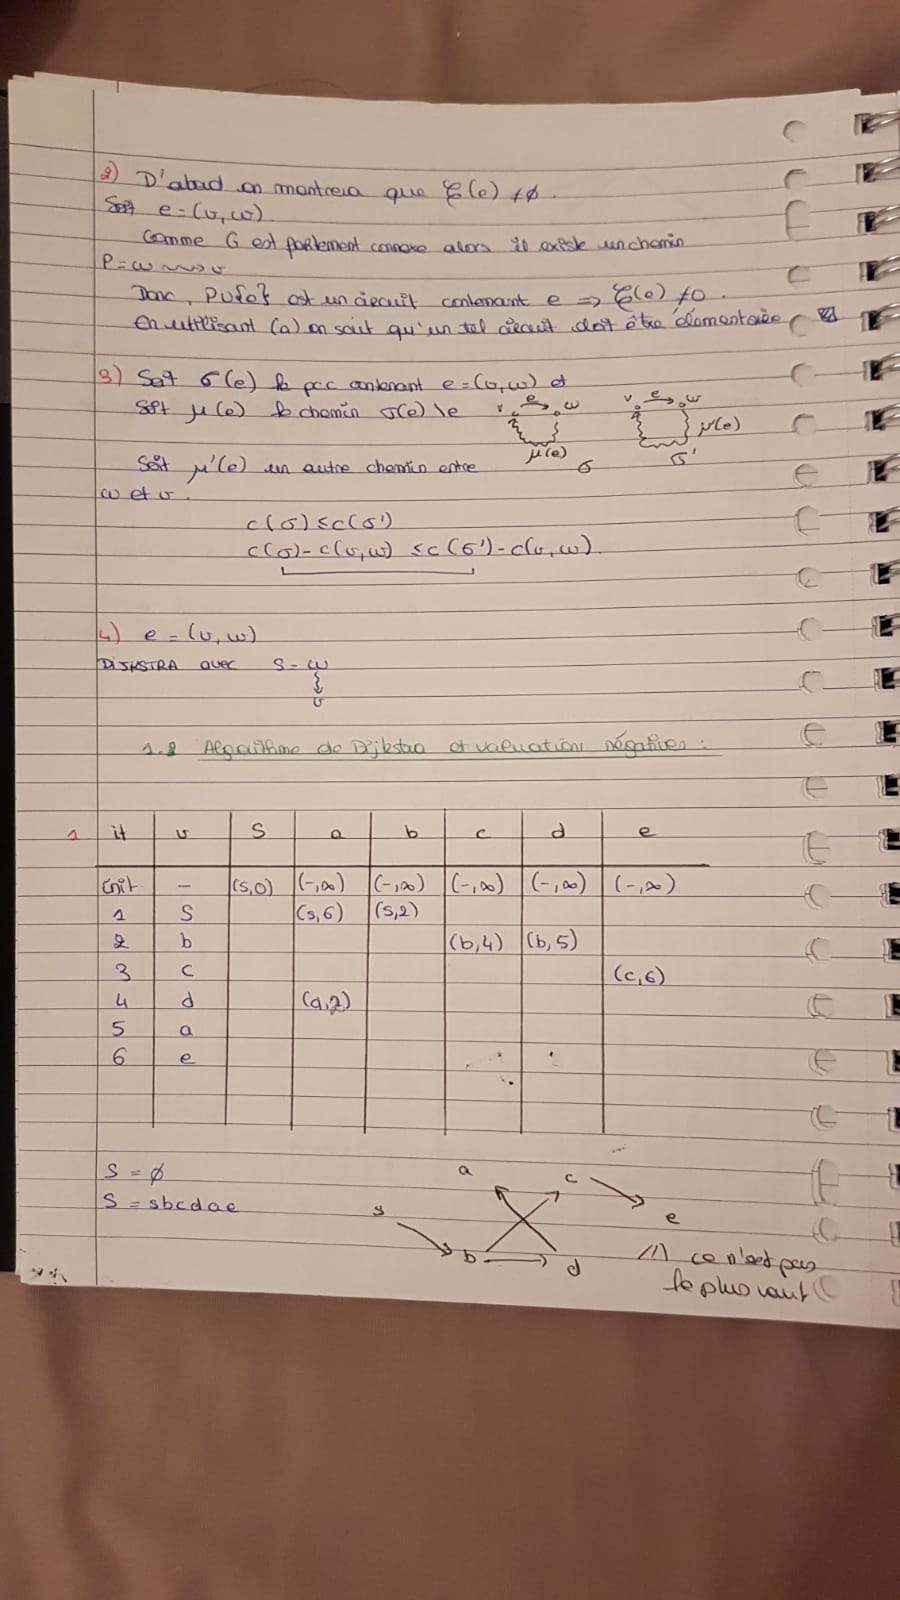 2) D'abord on montrera que C(e) ≠ ∅.
Soit e = (v, w)
Comme G est fortement connexe alors il existe un chemin
P = w ⇝ v
Donc, P∪{e} est un circuit contenant e => C(e) ≠ ∅.
En utilisant (a) on sait qu'un tel circuit doit être élémentaire
3) Soit σ(e) le pcc contenant e = (v, w) et
Soit μ(e) le chemin σ(e) \ e
v e w
μ(e) σ
v e w
μ'(e)
σ'
Soit μ'(e) un autre chemin entre
w et v.
c(σ) ≤ c(σ')
c(σ) - c(v, w) ≤ c(σ') - c(v, w).
4) e = (v, w)
DIJKSTRA avec s = w
v
1.2 Algorithme de Dijkstra et valuations négatives :
1 it v S a b c d e
init. - (s,0) (-,∞) (-,∞) (-,∞) (-,∞) (-,∞)
1 S (s,6) (s,2)
2 b (b,4) (b,5)
3 c (c,6)
4 d (d,2)
5 a
6 e
S = ∅
S = sbcdae
a c
s e
b d
/!\ ce n'est pas
le plus court